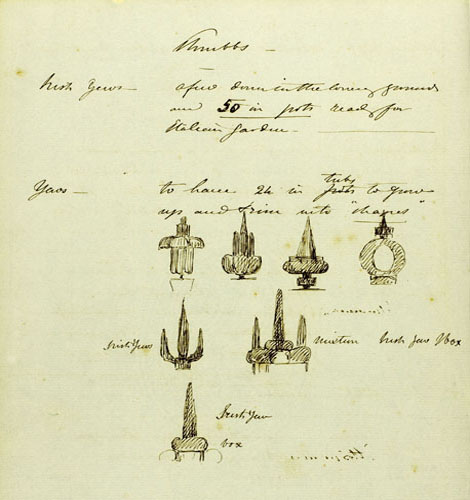 Shrubbs —
Irish Yews — a few down in the lower grounds
and 50 in pots ready for
Italian garden.
Yews — to have 24 in pots tubs to grow
up and trim into "shapes"
Irish Yews
mixture Irish Yew & box
Irish Yew
box